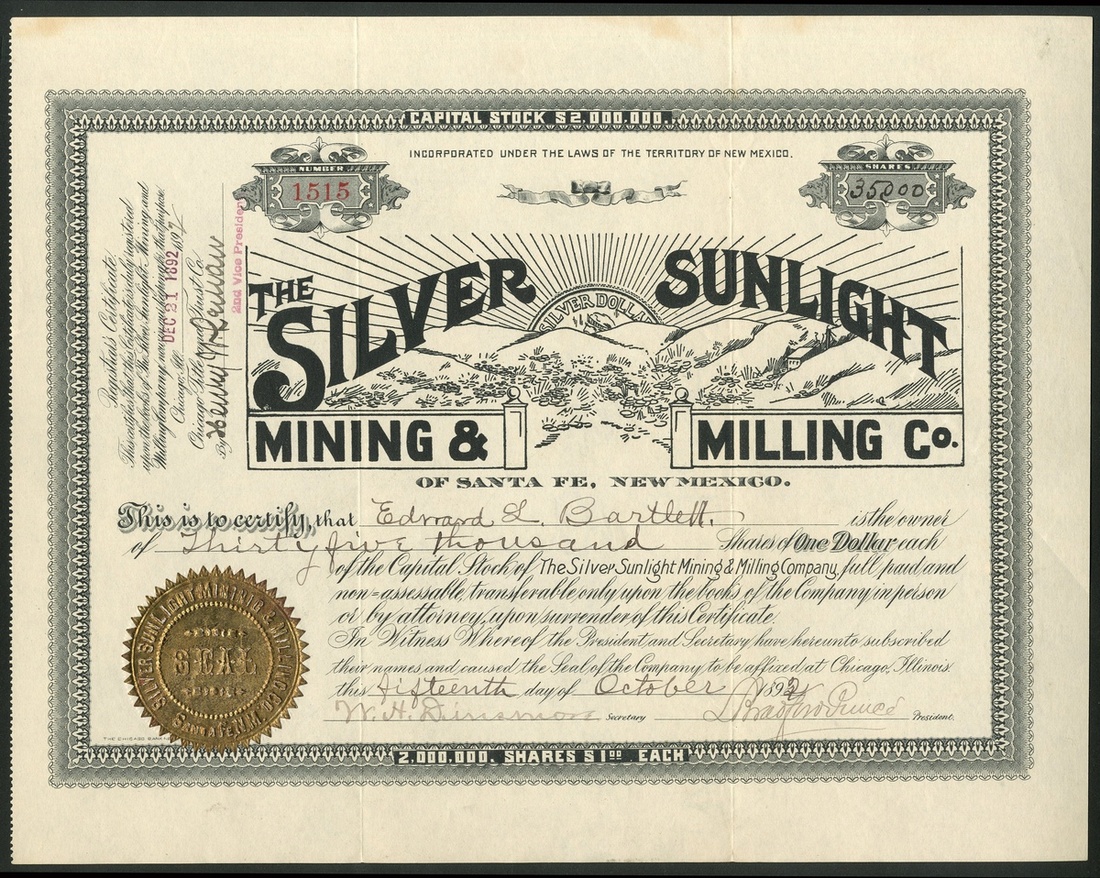 CAPITAL STOCK $2,000,000.
INCORPORATED UNDER THE LAWS OF THE TERRITORY OF NEW MEXICO.
NUMBER
1515
SHARES
35000
Registrar's Certificate
This certifies that this Certificate is this day registered
upon the books of The Silver Sunlight Mining and
Milling Company
DEC 21 1892
189
Chicago, Ill.
Trust Co.
By Henry
2nd Vice President
THE
SILVER
SUNLIGHT
SILVER DOLLAR
MINING &
MILLING Co.
OF SANTA FE, NEW MEXICO.
This is to certify, that Edward L. Bartlett. is the owner
of Thirty five thousand Shares of One Dollar each
of the Capital Stock of The Silver Sunlight Mining & Milling Company, full paid and
non=assessable, transferable only upon the books of the Company in person
or by attorney, upon surrender of this Certificate.
In Witness Whereof, the President and Secretary have hereunto subscribed
their names and caused the Seal of the Company to be affixed at Chicago, Illinois
this fifteenth day of October 1892
W. H. Dinsmore Secretary President.
SILVER SUNLIGHT MINING & MILLING CO.
SEAL
SANTA FE, N.M.
THE CHICAGO BANK
2,000,000. SHARES $1.00 EACH